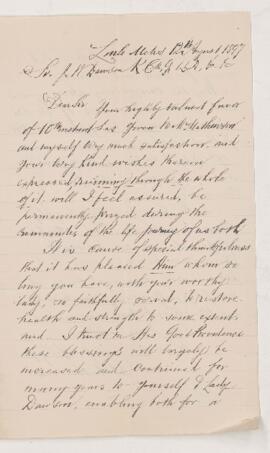 Little Metis 12th August 1897
Sir J. W. Dawson K.C.M.G. L.L.D. &c &c
Dear Sir Your highly valued favor
of 10th instant has given Mr Mathewson
and myself very much satisfaction and
your very kind wishes therein
expressed running through the whole
of it will I feel assured, be
permanently prized during the
remainder of the life journey of us both
It is cause of special thankfulness
that it has pleased Him whom so
long you have, with your worthy
lady, so faithfully served, to restore
health and strength to some extent
and I trust in His Good Providence
these blessings will largely be
increased and continued for
many years to yourself & Lady
Dawson, enabling both for a